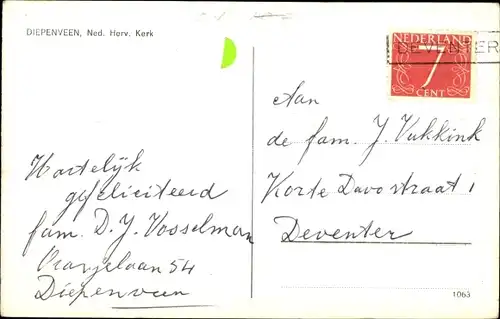 DIEPENVEEN, Ned. Herv. Kerk
NEDERLAND
7
CENT
DEVENTER
Aan
de fam. J. Vukkink
Korte Davostraat 1
Deventer
Hartelijk
gefeliciteerd
fam. D. J. Vosselman
Oranjelaan 54
Diepenveen
1063